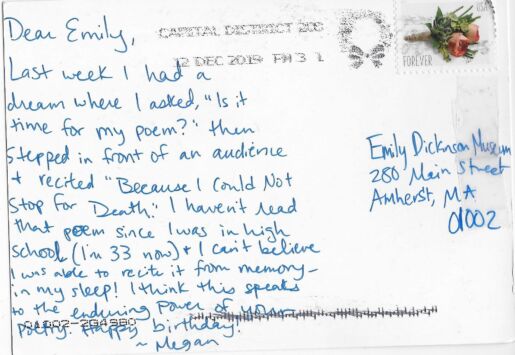 Dear Emily,
CAPITAL DISTRICT 208
12 DEC 2019 PM 3 L
USA
FOREVER
Last week I had a
dream where I asked, "Is it
time for my poem?" then
stepped in front of an audience
+ recited "Because I Could Not
Stop for Death." I haven't read
that poem since I was in high
school (I'm 33 now) + I can't believe
I was able to recite it from memory –
in my sleep! I think this speaks
to the enduring power of your
poetry. Happy birthday!
~ Megan
Emily Dickinson Museum
280 Main Street
Amherst, MA
01002